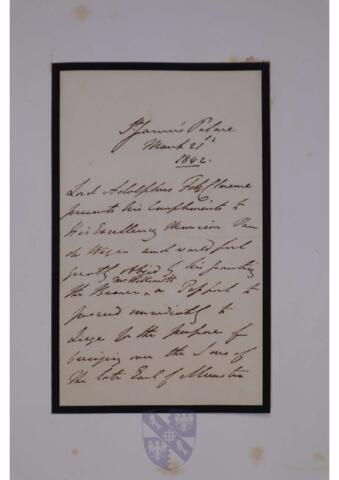 St James's Palace
March 21st
1842.
Lord Adolphus FitzClarence
presents his Compliments to
His Excellency Monsieur Van
de Weyer and would feel
greatly obliged by his granting
the Bearer, a Passport to
proceed immediately to
Liege for the purpose of
bringing over the Sons of
the late Earl of Munster